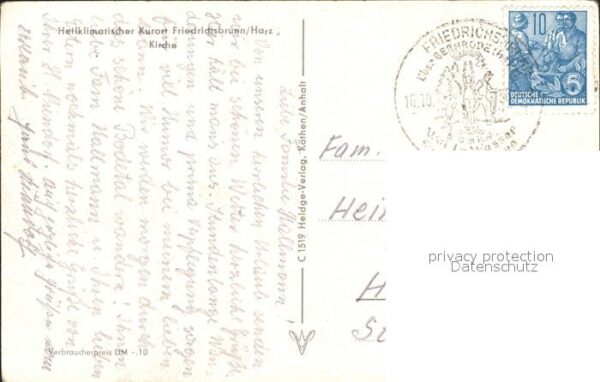 Heilklimatischer Kurort Friedrichsbrunn/Harz
Kirche
Liebe Familie Hallmann!
Von unserem herrlichen Urlaub senden
wir bei schönem Wetter herzliche Grüße.
Hier hält man's aus. Stundenlange Wan-
derungen und prima Verpflegung sorgen
für viel Humor bei meinem lieben
Mann. Wir werden morgen durch
das schöne Bodetal wandern! Ihnen
liebe Fam. Hallmann u. Ihren lieben
Eltern nochmals herzliche Grüße von
Ihrer
Verbraucherpreis DM -.10
C 1519 Heldge-Verlag, Köthen/Anhalt
FRIEDRICHSBRUNN
über GERNRODE (HARZ)
10
DEUTSCHE
DEMOKRATISCHE REPUBLIK
Fam.
Hein
H
privacy protection
Datenschutz